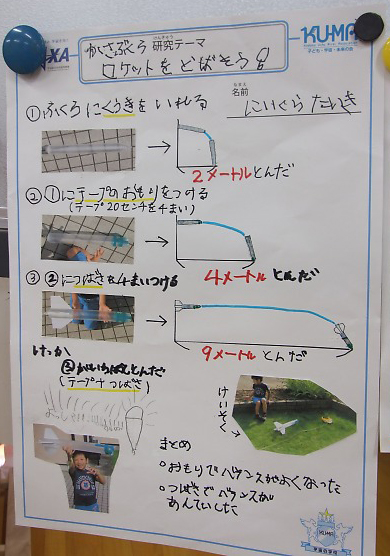 XA
KU-MA
子ども・宇宙・未来の会
かさぶくろ 研究テーマ
けんきゅう
ロケットをとばそう!
①ふくろにくうきをいれる
名前
なまえ
にいくら たいき
2メートルとんだ
②①にテープのおもりをつける
(テープ20センチを4まい)
4メートルとんだ
③②につばさを4まいつける
9メートルとんだ
けっか
③がいちばんとんだ
(テープ+つばさ)
けいそく
まとめ
○おもりでバランスがよくなった
○つばさでバランスが
あんていした
KU-MA
宇宙の学校